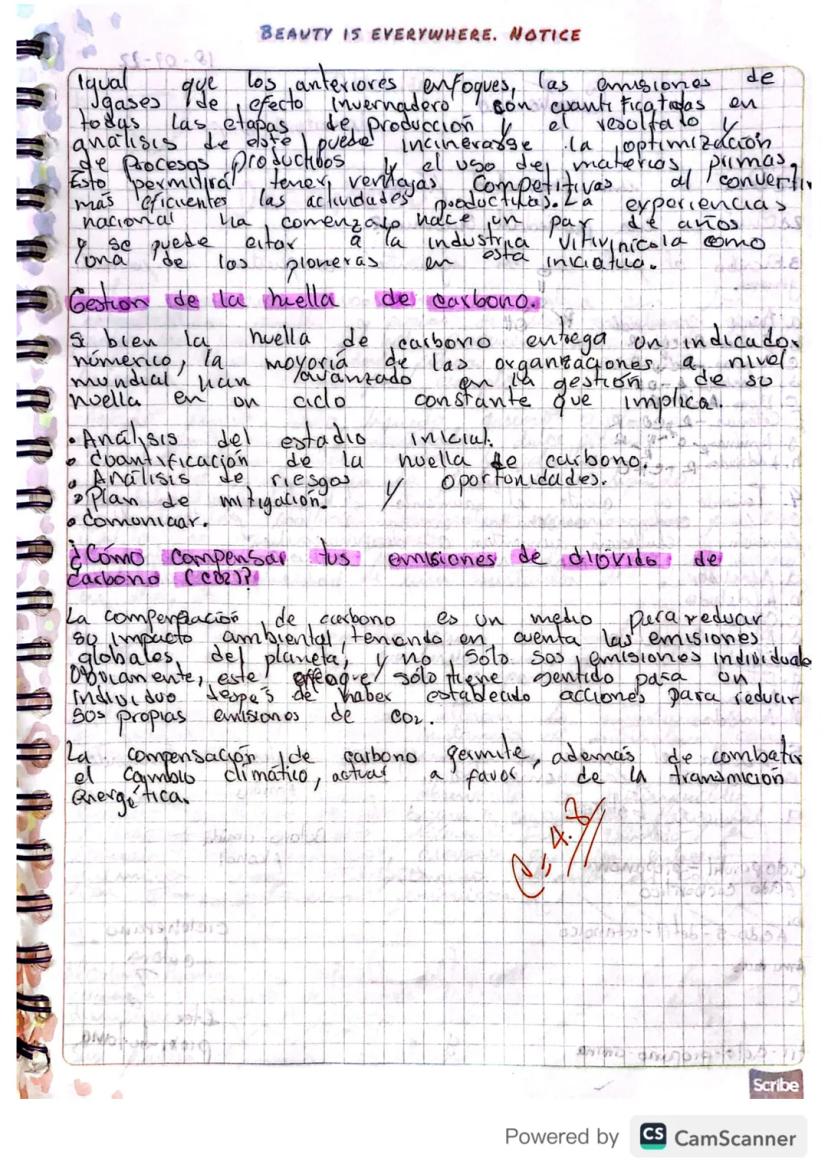 BEAUTY IS EVERYWHERE. NOTICE
Igual que los anteriores enfoques, las emisiones de
gases de efecto invernadero son cuantificatadas en
todas las etapas de Producción y el resultato y
analisis de este puede incinerarse la optimización
de Procesos productibos y el uso de materias primas.
Esto permitirá tener ventajas competitivas al convertir
más eficientes las actividades productivas. La experiencias
nacional ha comenzato hace un par de años
y se puede citar a la industria vitivinícola como
una de los pioneras en esta iniciativa.
Gestion de la huella de carbono.
Si bien la huella de carbono entrega un indicador
númerico, la mayoría de las organizaciones a nivel
mundial han avanzado en la gestión de su
huella en un ciclo constante que implica.
• Análisis del estadio inicial.
• Cuantificación de la huella de carbono.
• Análisis de riesgos y oportunidades.
• Plan de mitigación.
• Comunicar.
¿Cómo compensar tus emisiones de dióvido de
carbono (CO2)?
La compensación de carbono es un medio para reducir
su impacto ambiental, teniendo en cuenta las emisiones
globales del planeta, y no sólo sus emisiones individuals
Obviamente, este enfoque sólo tiene sentido para un
individuo despés de haber establecido acciones para reducir
sus propias emisiones de CO2.
La compensación de carbono permite, además de combatir
el cambio climático, actuar a favor de la transmición
energética.
4.8
Scribe
Powered by CS CamScanner